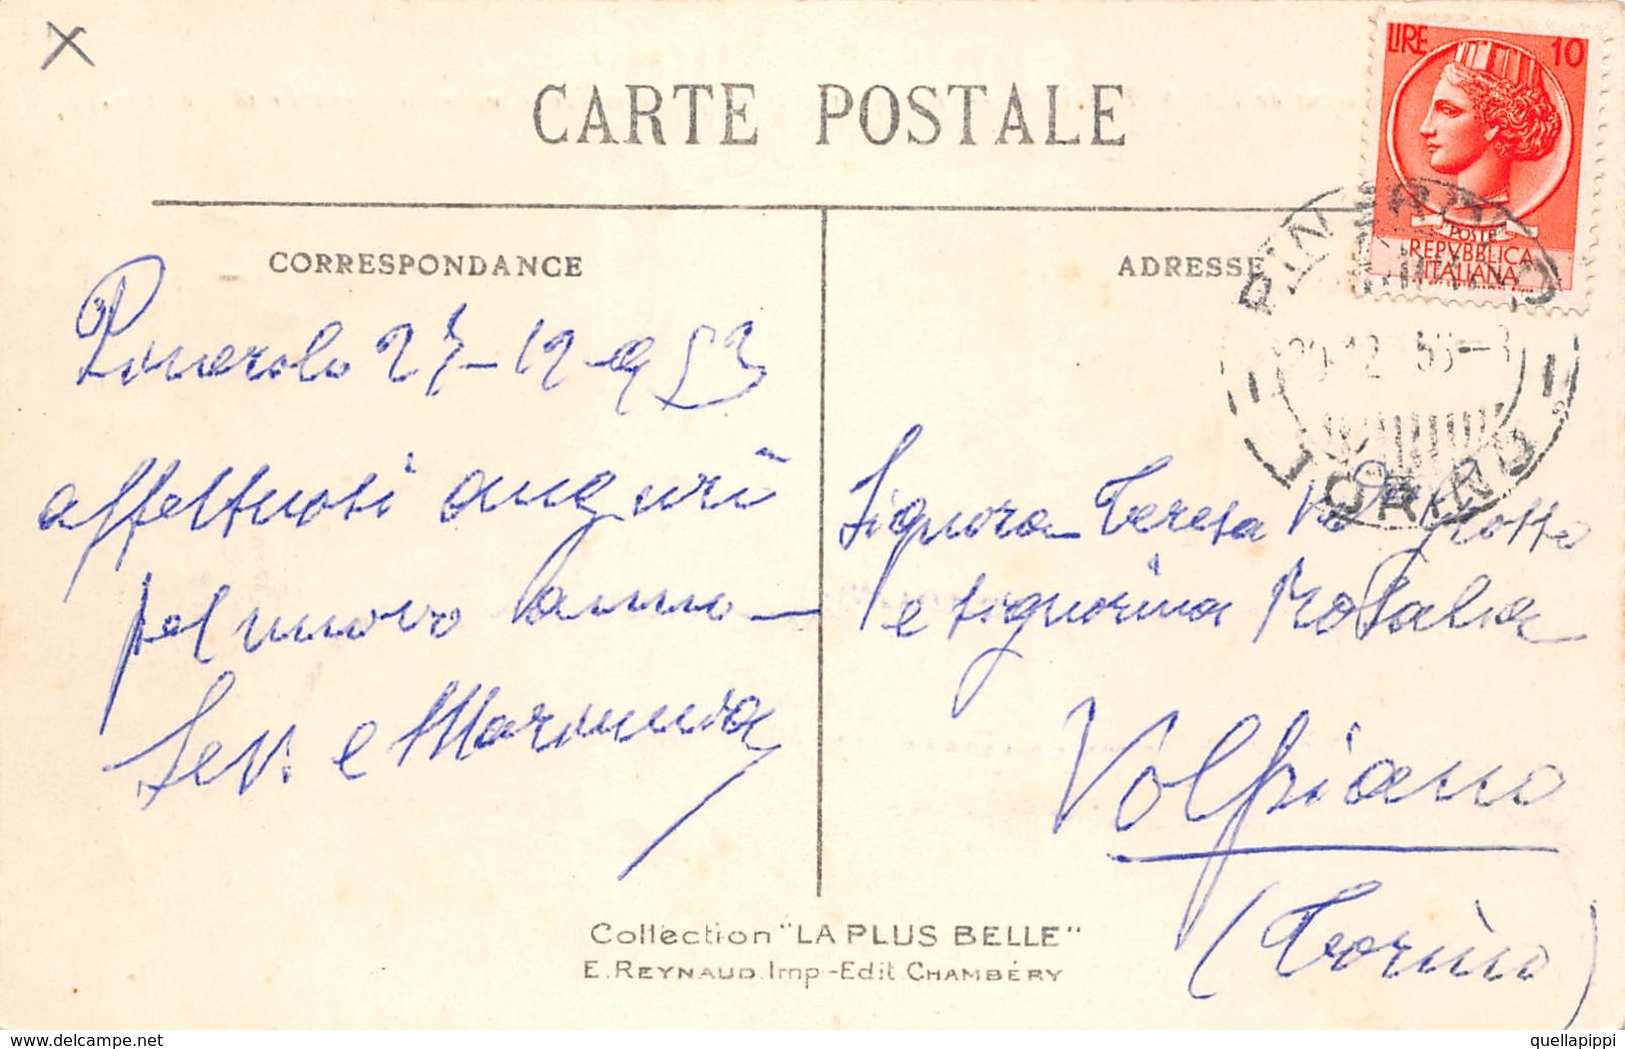 CARTE POSTALE
LIRE 10
POSTE
REPVBBLICA
ITALIANA
PINEROLO
TORINO
CORRESPONDANCE
Pinerolo 27-12-953
affettuosi auguri
pel nuovo anno
ADRESSE
Signora Teresa
e signorina Rosalia
Volpiano
(Torino)
Collection "LA PLUS BELLE"
E. REYNAUD. Imp-Edit CHAMBÉRY
delcampe.net
quellapippi